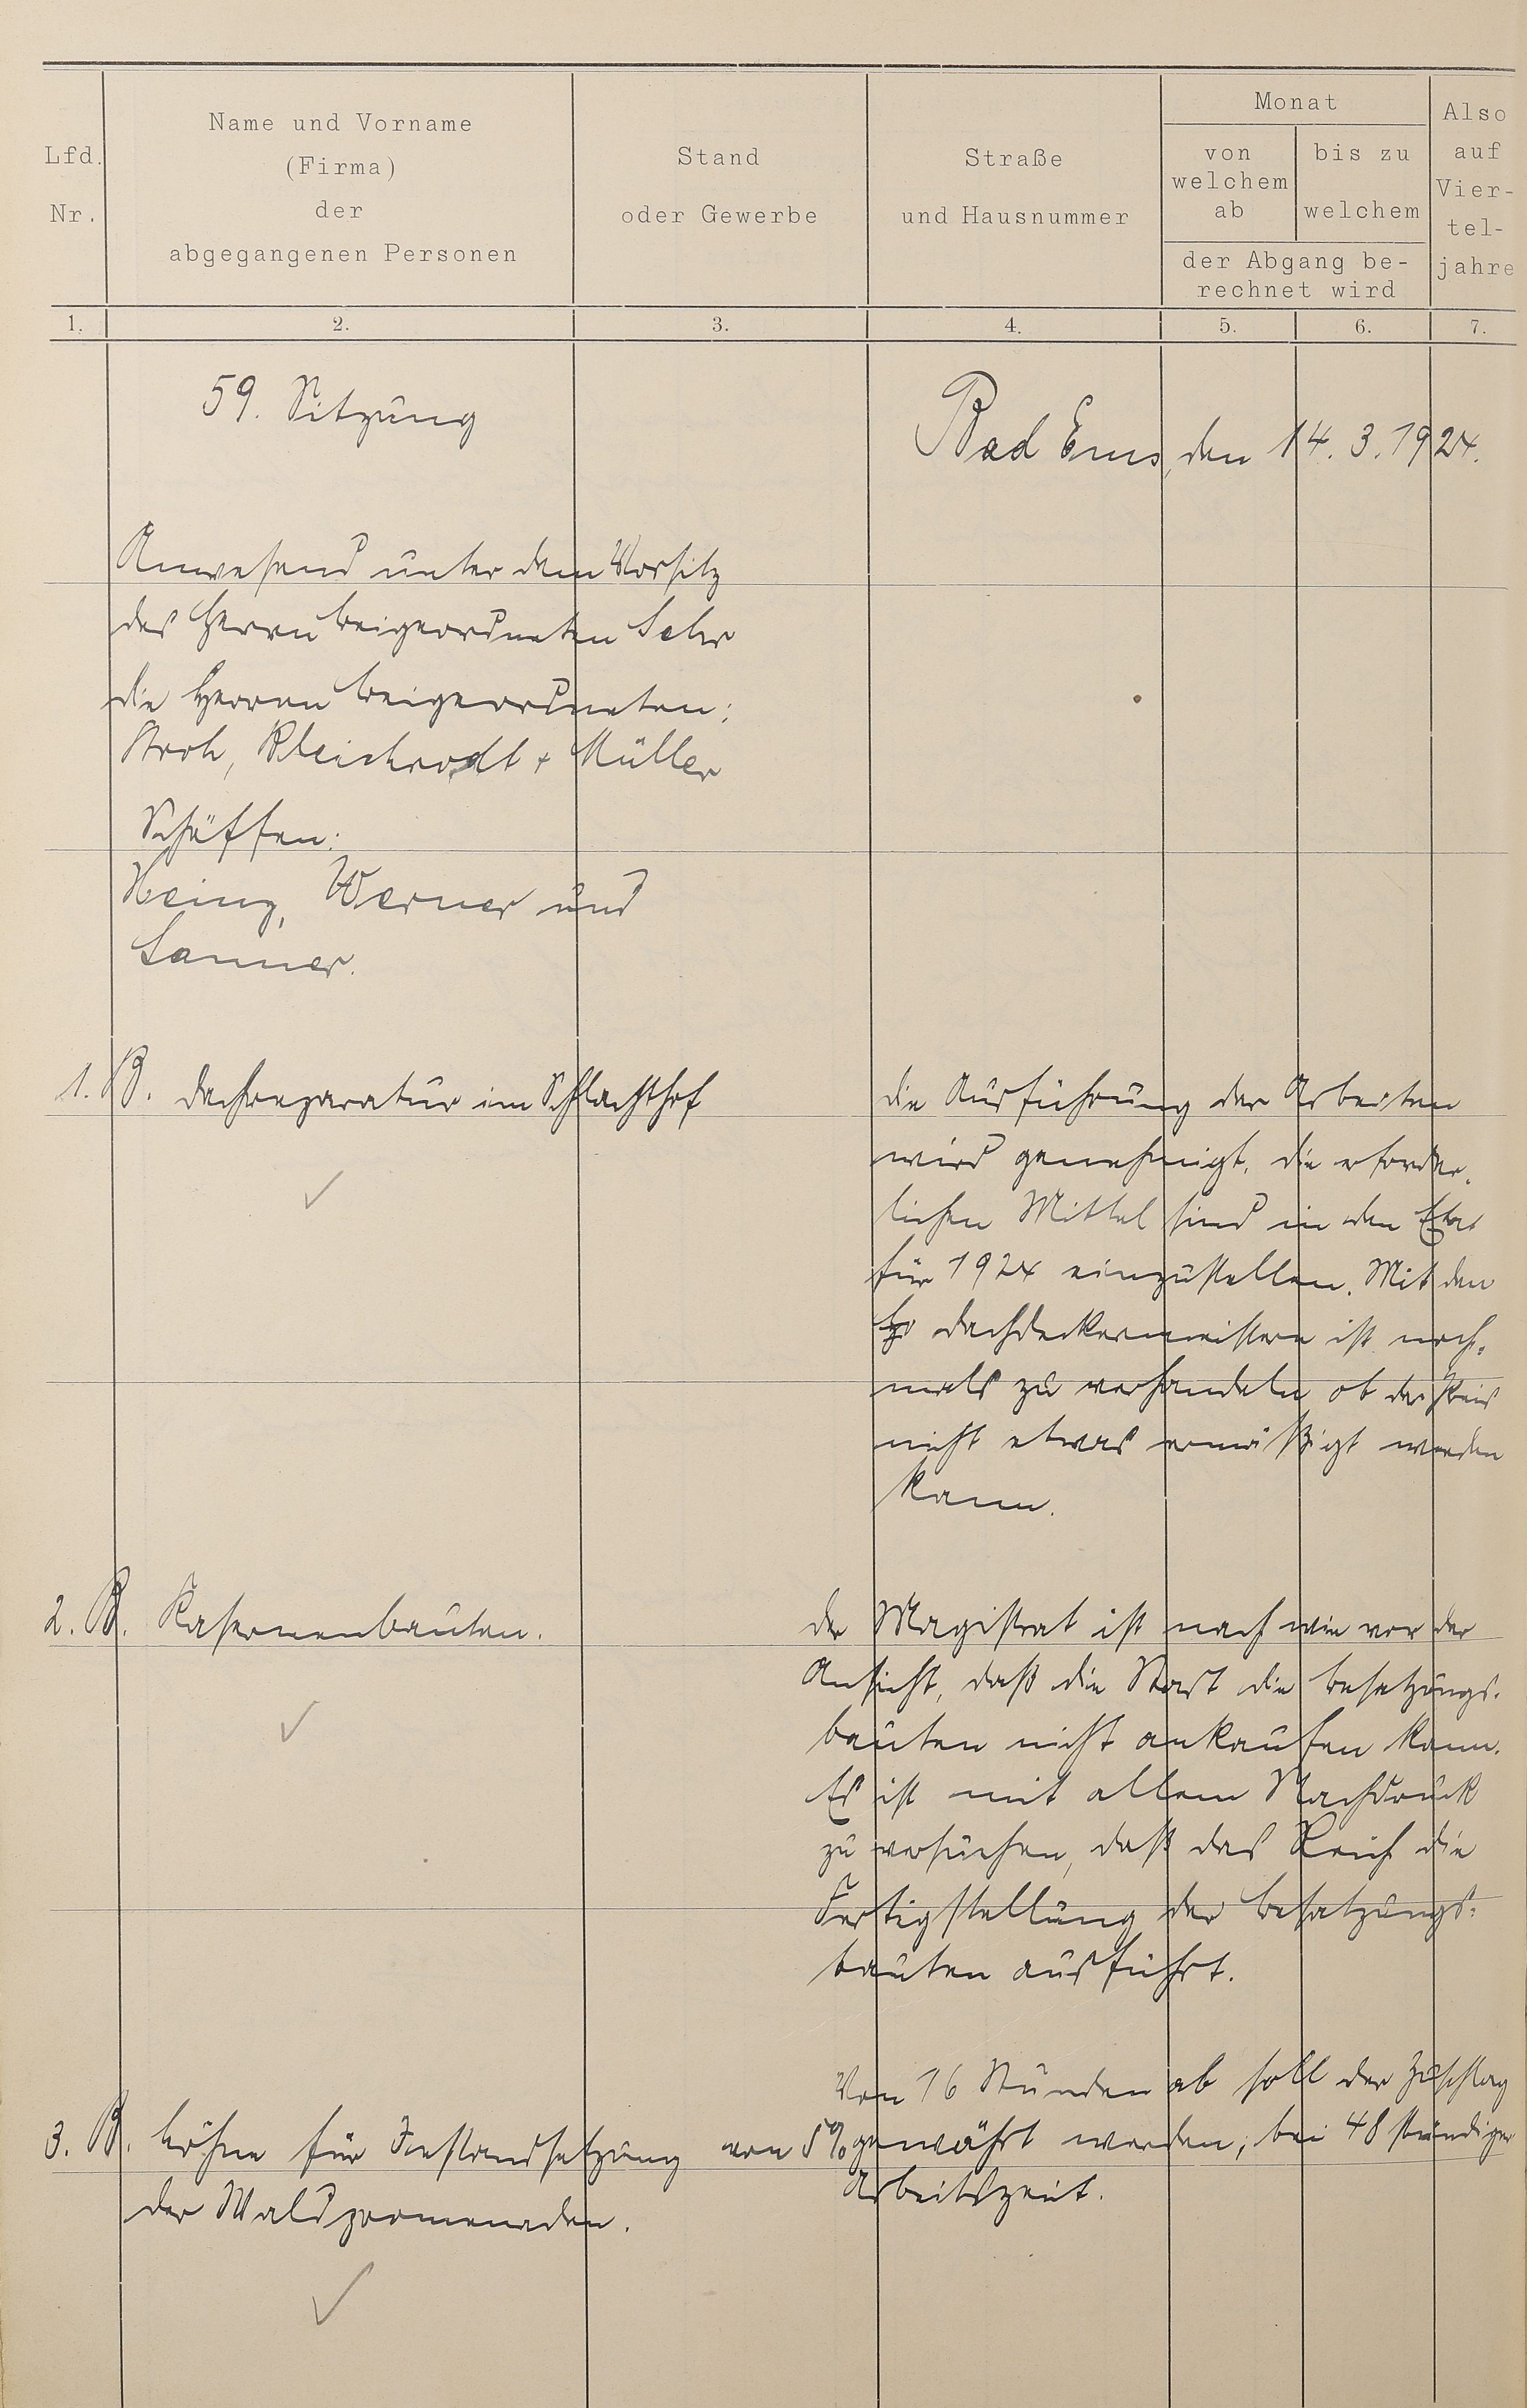 Lfd.
Nr.
Name und Vorname
(Firma)
der
abgegangenen Personen
Stand
oder Gewerbe
Straße
und Hausnummer
Monat
von
welchem
ab
bis zu
welchem
der Abgang be-
rechnet wird
Also
auf
Vier-
tel-
jahre
1. 2. 3. 4. 5. 6. 7.
59. Sitzung
Bad Ems, den 14. 3. 1924.
Anwesend unter dem Vorsitz
des Herrn Beigeordneten
die Herren Beigeordneten:
Stroh, Bleichrodt + Müller
Schöffen:
Heinz, Werner und
Sanner.
1. B. Dachreparatur im Schlachthof
die Ausführung der Arbeiten
wird genehmigt, die erforder-
lichen Mittel sind in den Etat
für 1924 einzustellen. Mit den
Dachdeckermeistern ist noch-
mals zu verhandeln ob der Preis
nicht etwas ermäßigt werden
kann.
2. B. Kasernenbauten.
der Magistrat ist nach wie vor der
Ansicht, daß die Stadt die Besatzungs-
bauten nicht ankaufen kann.
Es ist mit allem Nachdruck
zu versuchen, daß das Reich die
Fertigstellung der Besatzungs-
bauten ausführt.
3. B. Löhne für Instandsetzung
der Waldpromenaden.
Von 16 Stunden ab soll der Zuschlag
von 5% gewährt werden, bei 48 stündiger
Arbeitszeit.